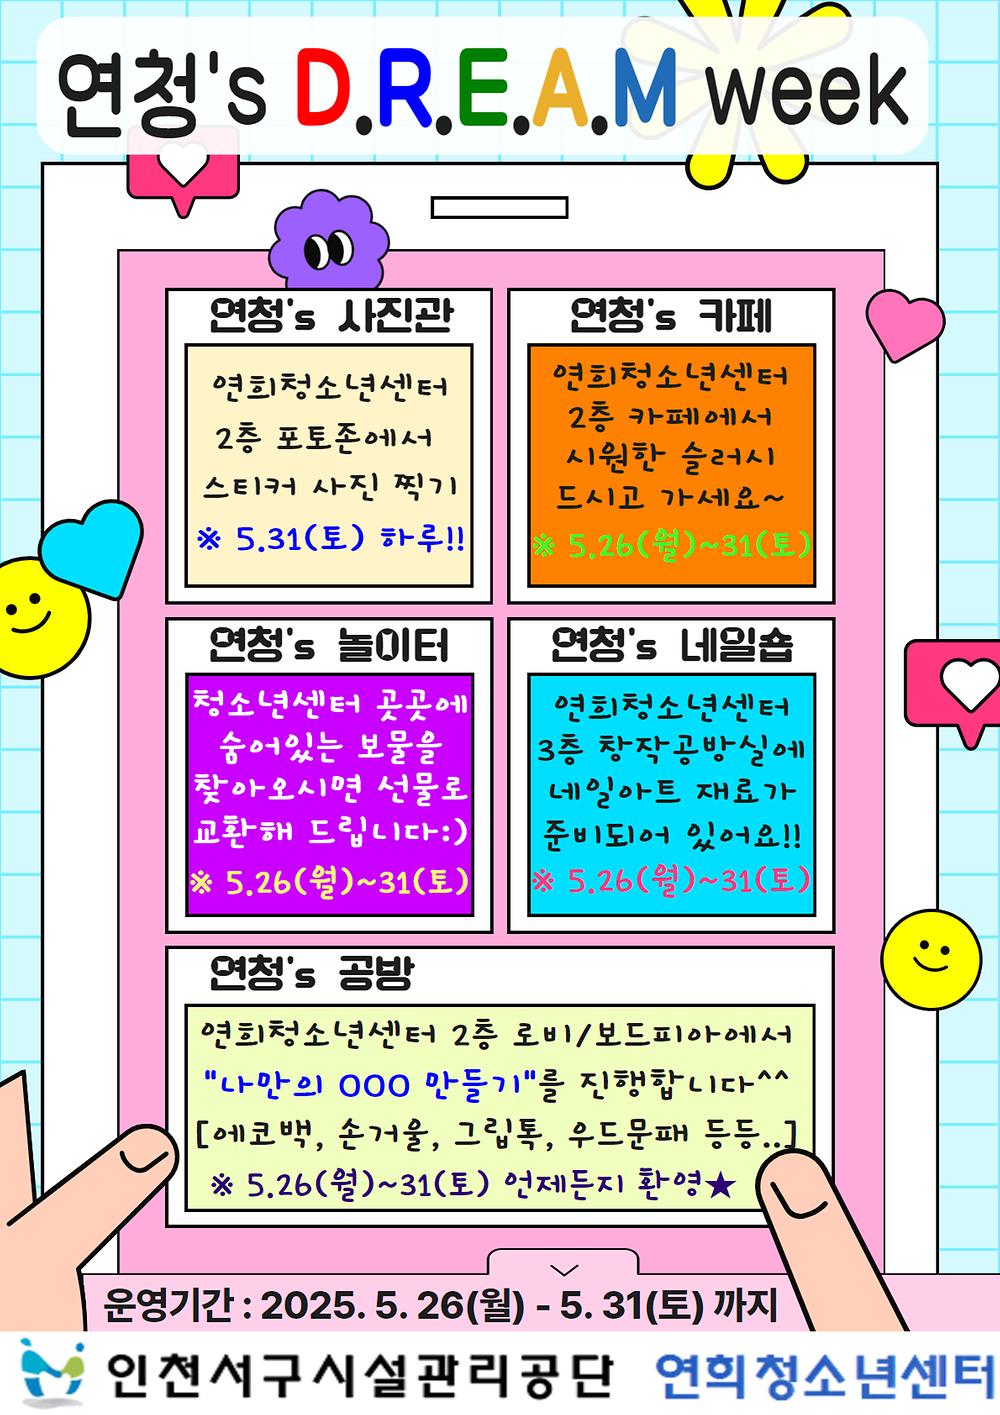 연청's D.R.E.A.M week
연청's 사진관
연희청소년센터
2층 포토존에서
스티커 사진 찍기
※ 5.31(토) 하루!!
연청's 카페
연희청소년센터
2층 카페에서
시원한 슬러시
드시고 가세요~
※ 5.26(월)~31(토)
연청's 놀이터
청소년센터 곳곳에
숨어있는 보물을
찾아오시면 선물로
교환해 드립니다:)
※ 5.26(월)~31(토)
연청's 네일숍
연희청소년센터
3층 창작공방실에
네일아트 재료가
준비되어 있어요!!
※ 5.26(월)~31(토)
연청's 공방
연희청소년센터 2층 로비/보드피아에서
"나만의 OOO 만들기"를 진행합니다^^
[에코백, 손거울, 그립톡, 우드문패 등등..]
※ 5.26(월)~31(토) 언제든지 환영★
운영기간 : 2025. 5. 26(월) - 5. 31(토) 까지
인천서구시설관리공단 연희청소년센터